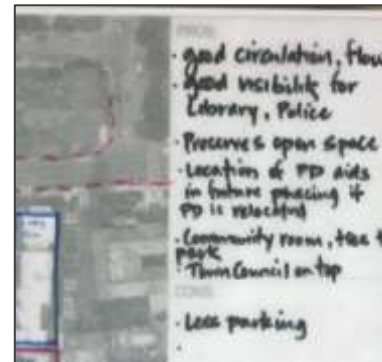 PROS:
· good circulation, flow
· good visibility for
Library, Police
· Preserves open space
· Location of PD aids
in future phasing if
PD is relocated
· Community room, tree
park
· Council on top
CONS:
· Less parking
·